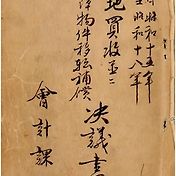 昭和十五年
至昭和十八年
地買收並ニ
物件移転補償
決議書
會計課